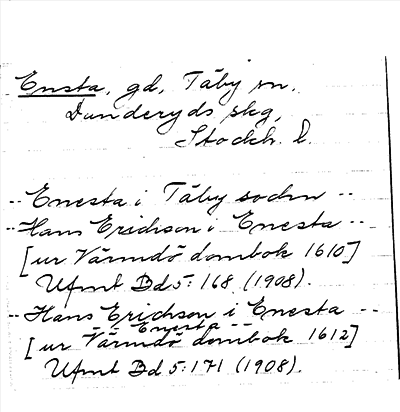 Ensta, gd, Täby sn.
Danderyds skg,
Stockh. l.
-- Enesta i Täby sodn --
-- Hans Erichson i Enesta --
[ur Värmdö dombok 1610]
Ufmt Bd 5: 168 (1908).
-- Hans Erichson i Enesta --
-- Enesta --
[ur Värmdö dombok 1612]
Ufmt Bd 5: 171 (1908).